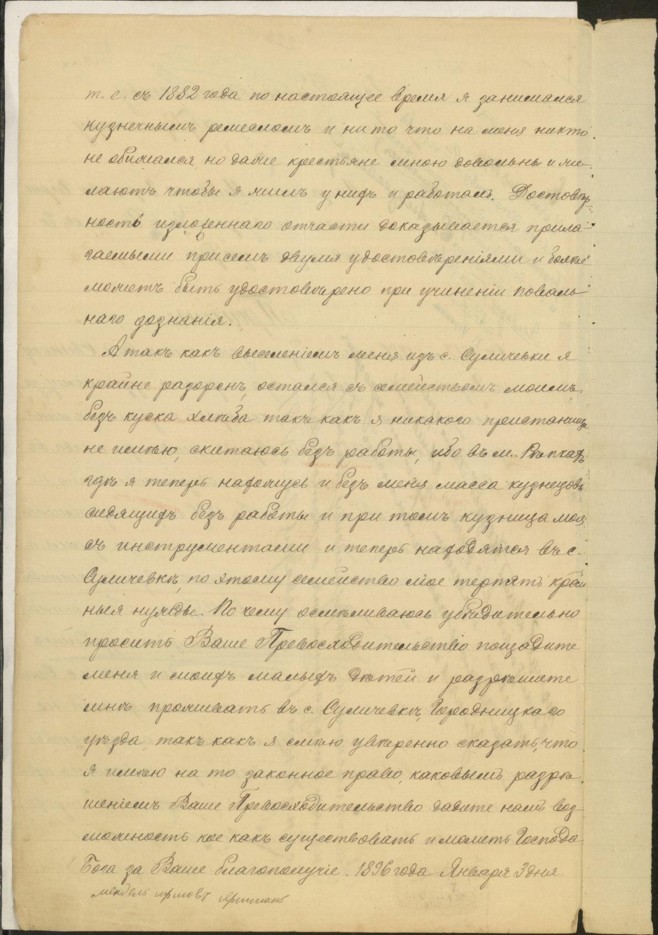 т. е. съ 1882 года по настоящее время я занимался
кузнечнымъ ремесломъ и ни то что на меня никто
не обижался но даже крестьяне мною довольны и же-
лаютъ чтобы я жилъ у нихъ и работалъ. Достовѣр-
ность изложеннаго отчасти доказывается прила-
гаемыми присемъ двумя удостовѣреніями и болѣе
можетъ быть удостовѣрено при учиненіи поваль-
наго дознанія.
А такъ какъ выселеніемъ меня изъ с. Суличевки я
крайне разоренъ, остался съ семействомъ моимъ
безъ куска хлѣба такъ какъ я никакого пристанища
не имѣю, скитаюсь безъ работы, ибо въ м.
гдѣ я теперь нахожусь и безъ меня масса кузнецовъ
сидящихъ безъ работы и при томъ кузница моя
съ инструментами и теперь находятся въ с.
Суличевкѣ, по этому семейство мое терпятъ край
ныя нужды. По чему осмѣливаюсь убѣдительно
просить Ваше Превосходительство пощадите
меня и моихъ малыхъ дѣтей и разрѣшите
мнѣ проживать въ с. Суличевкѣ, Городницкаго
уѣзда такъ какъ я смѣю увѣренно сказать, что
я имѣю на то законное право, каковымъ разрѣ-
шеніемъ Ваше Превосходительство дадите намъ воз
можность кое какъ существовать и молить Господа
Бога за Ваше благополучіе. 1896 года Января 3 дня